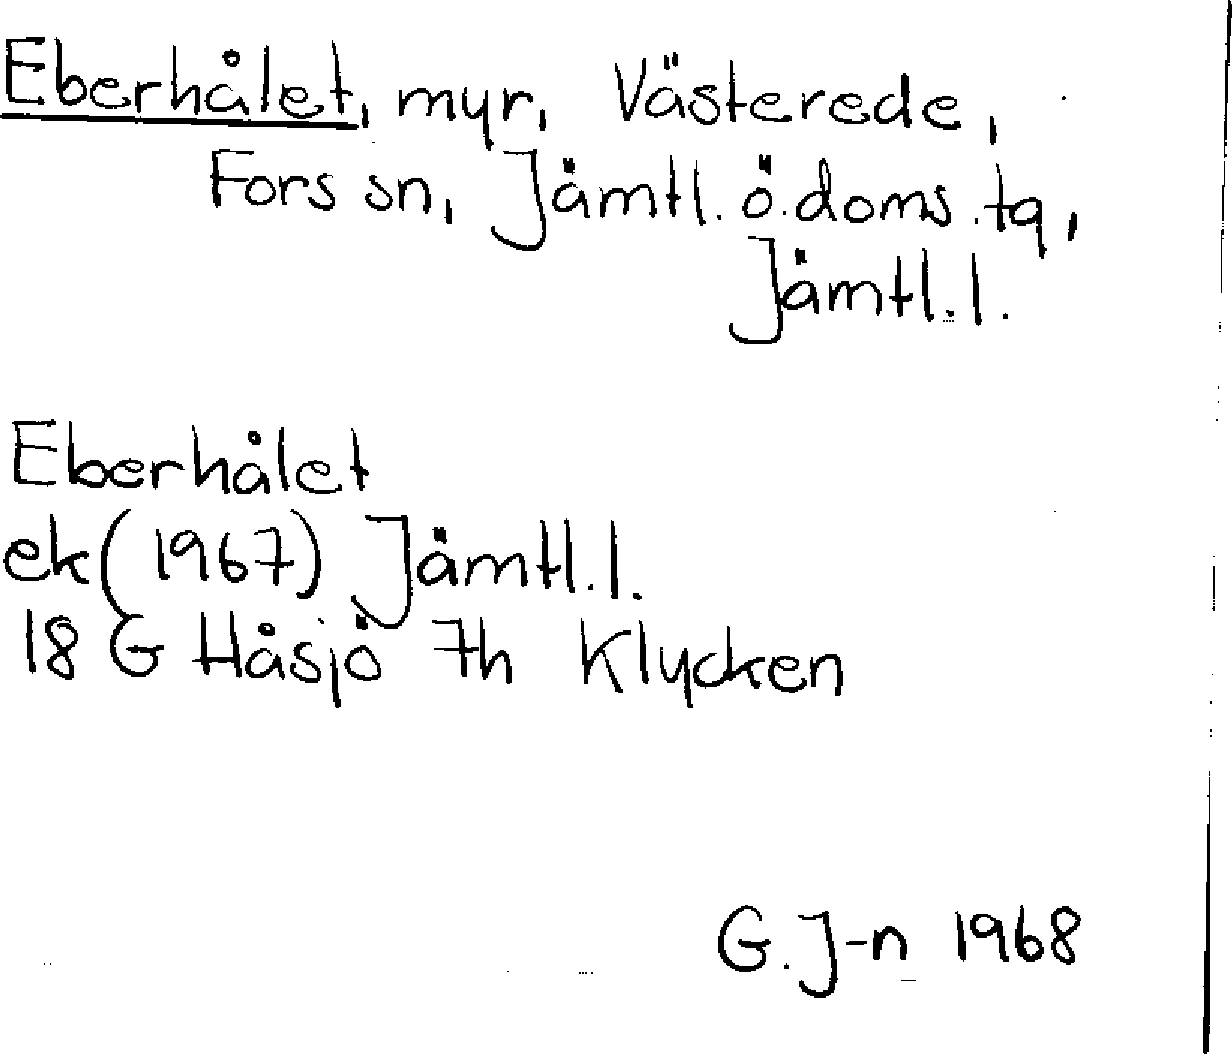 Eberhålet, myr, Västerede,
Fors sn, Jämtl. ö. doms. tg,
Jämtl. l.
Eberhålet
ek (1967) Jämtl. l.
18 G Håsjö 7h Klycken
G. J-n 1968